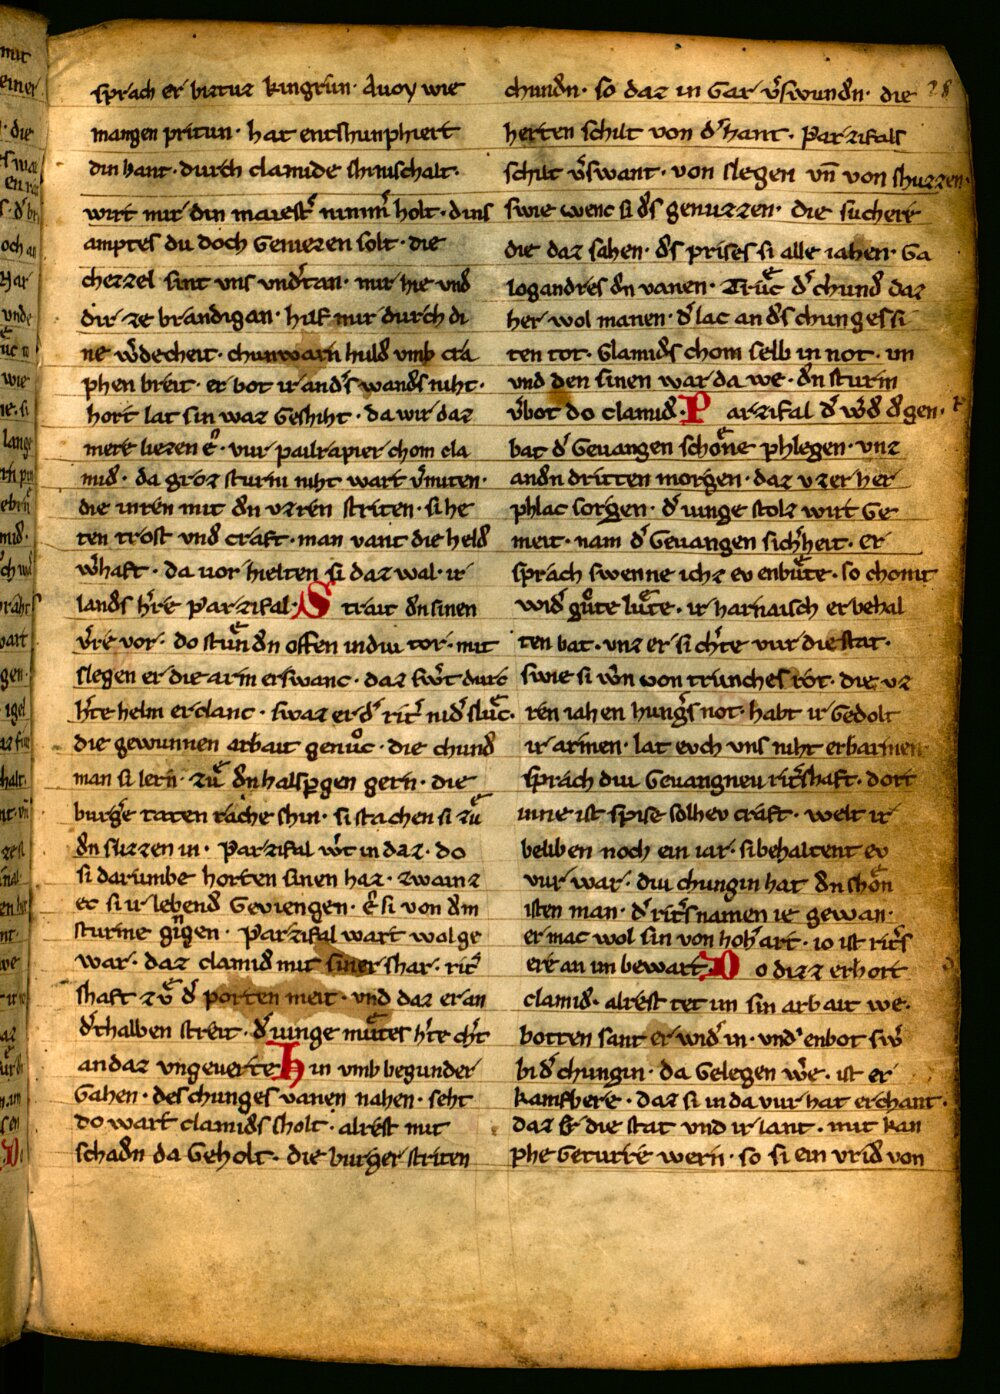 sprach er birtuz kingrun· Avoy wie
mangen pritun· hat entshunphiert
din hant· durch clamide shinischalt·
wirt mir din maiestꝰ nimm̄ holt· dins
amptes du doch Geniezen solt· die
chezzel sint uns undꝰtan· mir hie unđ
dir ze brandigan· hilf mir durch di
ne wꝰdecheit· chunwarn hulđ umb cra
phen breit· er bot ir andꝰs wandꝰs niht·
hort lat sin waz Geshiht· da wir daz
mere liezen eꝰ· vur pailrapier chom cla
miđ· da groz sturm niht wart vꝰmiten·
die inren mit đn uzren striten· si he
ten trost unđ craft· man vant die helđ
wꝰhaft· da vor hielten si daz wal· ir
landꝰs hꝰre Parzifal· S trait đn sinen
vꝰre vor· do stuͤndn offen indiu tor· mit
slegen er die arm erswanc· daz swꝰt durc
hꝰte helm erclanc· swaz er đꝰ ritꝰ niđꝰ sluͤc·
die gewunnen arbait genuͦc· die chunđ
man si lern· zuͤ đn halspꝰgen gern· die
burgꝰe taten rache shin· si stachen si zuͤ
đn slizzen in· Parzifal wꝰt in daz· do
si darumbe horten sinen haz· zwainz
ec si ir lebenđ Geviengen· eꝰ si von đm
sturme giͥngen· Parzifal wart wol ge
war· daz clamiđ mit siner shar· ritꝰ
shaft zuͤ đꝰ porten meit· und daz er an
đꝰthalben streit· đꝰ iunge muͤtes hꝰte chꝰt
an daz ungeverte· H in umb begunder
Gahen· des chunges vanen nahen· seht
do wart clamidꝰs sholt· alrest mit
schadn da Geholt· die burger striten
chundn· so daz in Gar vꝰswundn· die 28
herten schilt von đꝰ hant· Parzifals
schilt vꝰswant· von slegen un̄ von shuzzen·
swie wenc si đꝰs genuzzen· die suchere
die daz sahen· đꝰs prises si alle iahen· Ga
logandres đn vanen· Truͤc đꝰ chunđ daz
her wol manen· đꝰ lac an đꝰs chunges si
ten tot· Clamidꝰs chom selb in not· im
und den sinen war da we· đn sturm
vꝰbot do clamiđ· P arzifal đꝰ wꝰđ đgen·
bat đꝰ Gevangen schoͤne phlegen· unz
andn dritten morgen· daz uzer her
phlac sorgen· đꝰ iunge stolz wirt Ge
meit· nam đꝰ Gevangen sichꝰheit· er
sprach swenne ichz ev enbuͤte· so chomt
widꝰ guͦte luͤte· ir harnaisch er behal
ten bat· unz er si chꝰte vur die stat·
swie si wꝰn von trunches rot· die uz
ren iahen hungꝰs not· habt ir Gedolt
ir armen· lat evch uns niht erbarmen
sprach diu Gevangneu ritꝰshaft· dort
inne ist spise solhev craft· welt ir
beliben noch ein iar· si behaltent ev
vur war· diu chungin hat đn shoͤn
isten man· đꝰ ritꝰs namen ie gewan·
er mac wol sin von hohꝰ art· io ist ritꝰs
ere an im bewart· D o dizz erhort
clamiđ· alrest tet im sin arbait we·
botten sant er widꝰ in· undꝰ enbot swꝰ
bi đꝰ chungin· da Gelegen wꝰe· ist er
kamfbere· daz si in da vur hat erchant·
daz Er die stat und ir lant· mit kan
phe Geturre wern· so si ein vriđ von